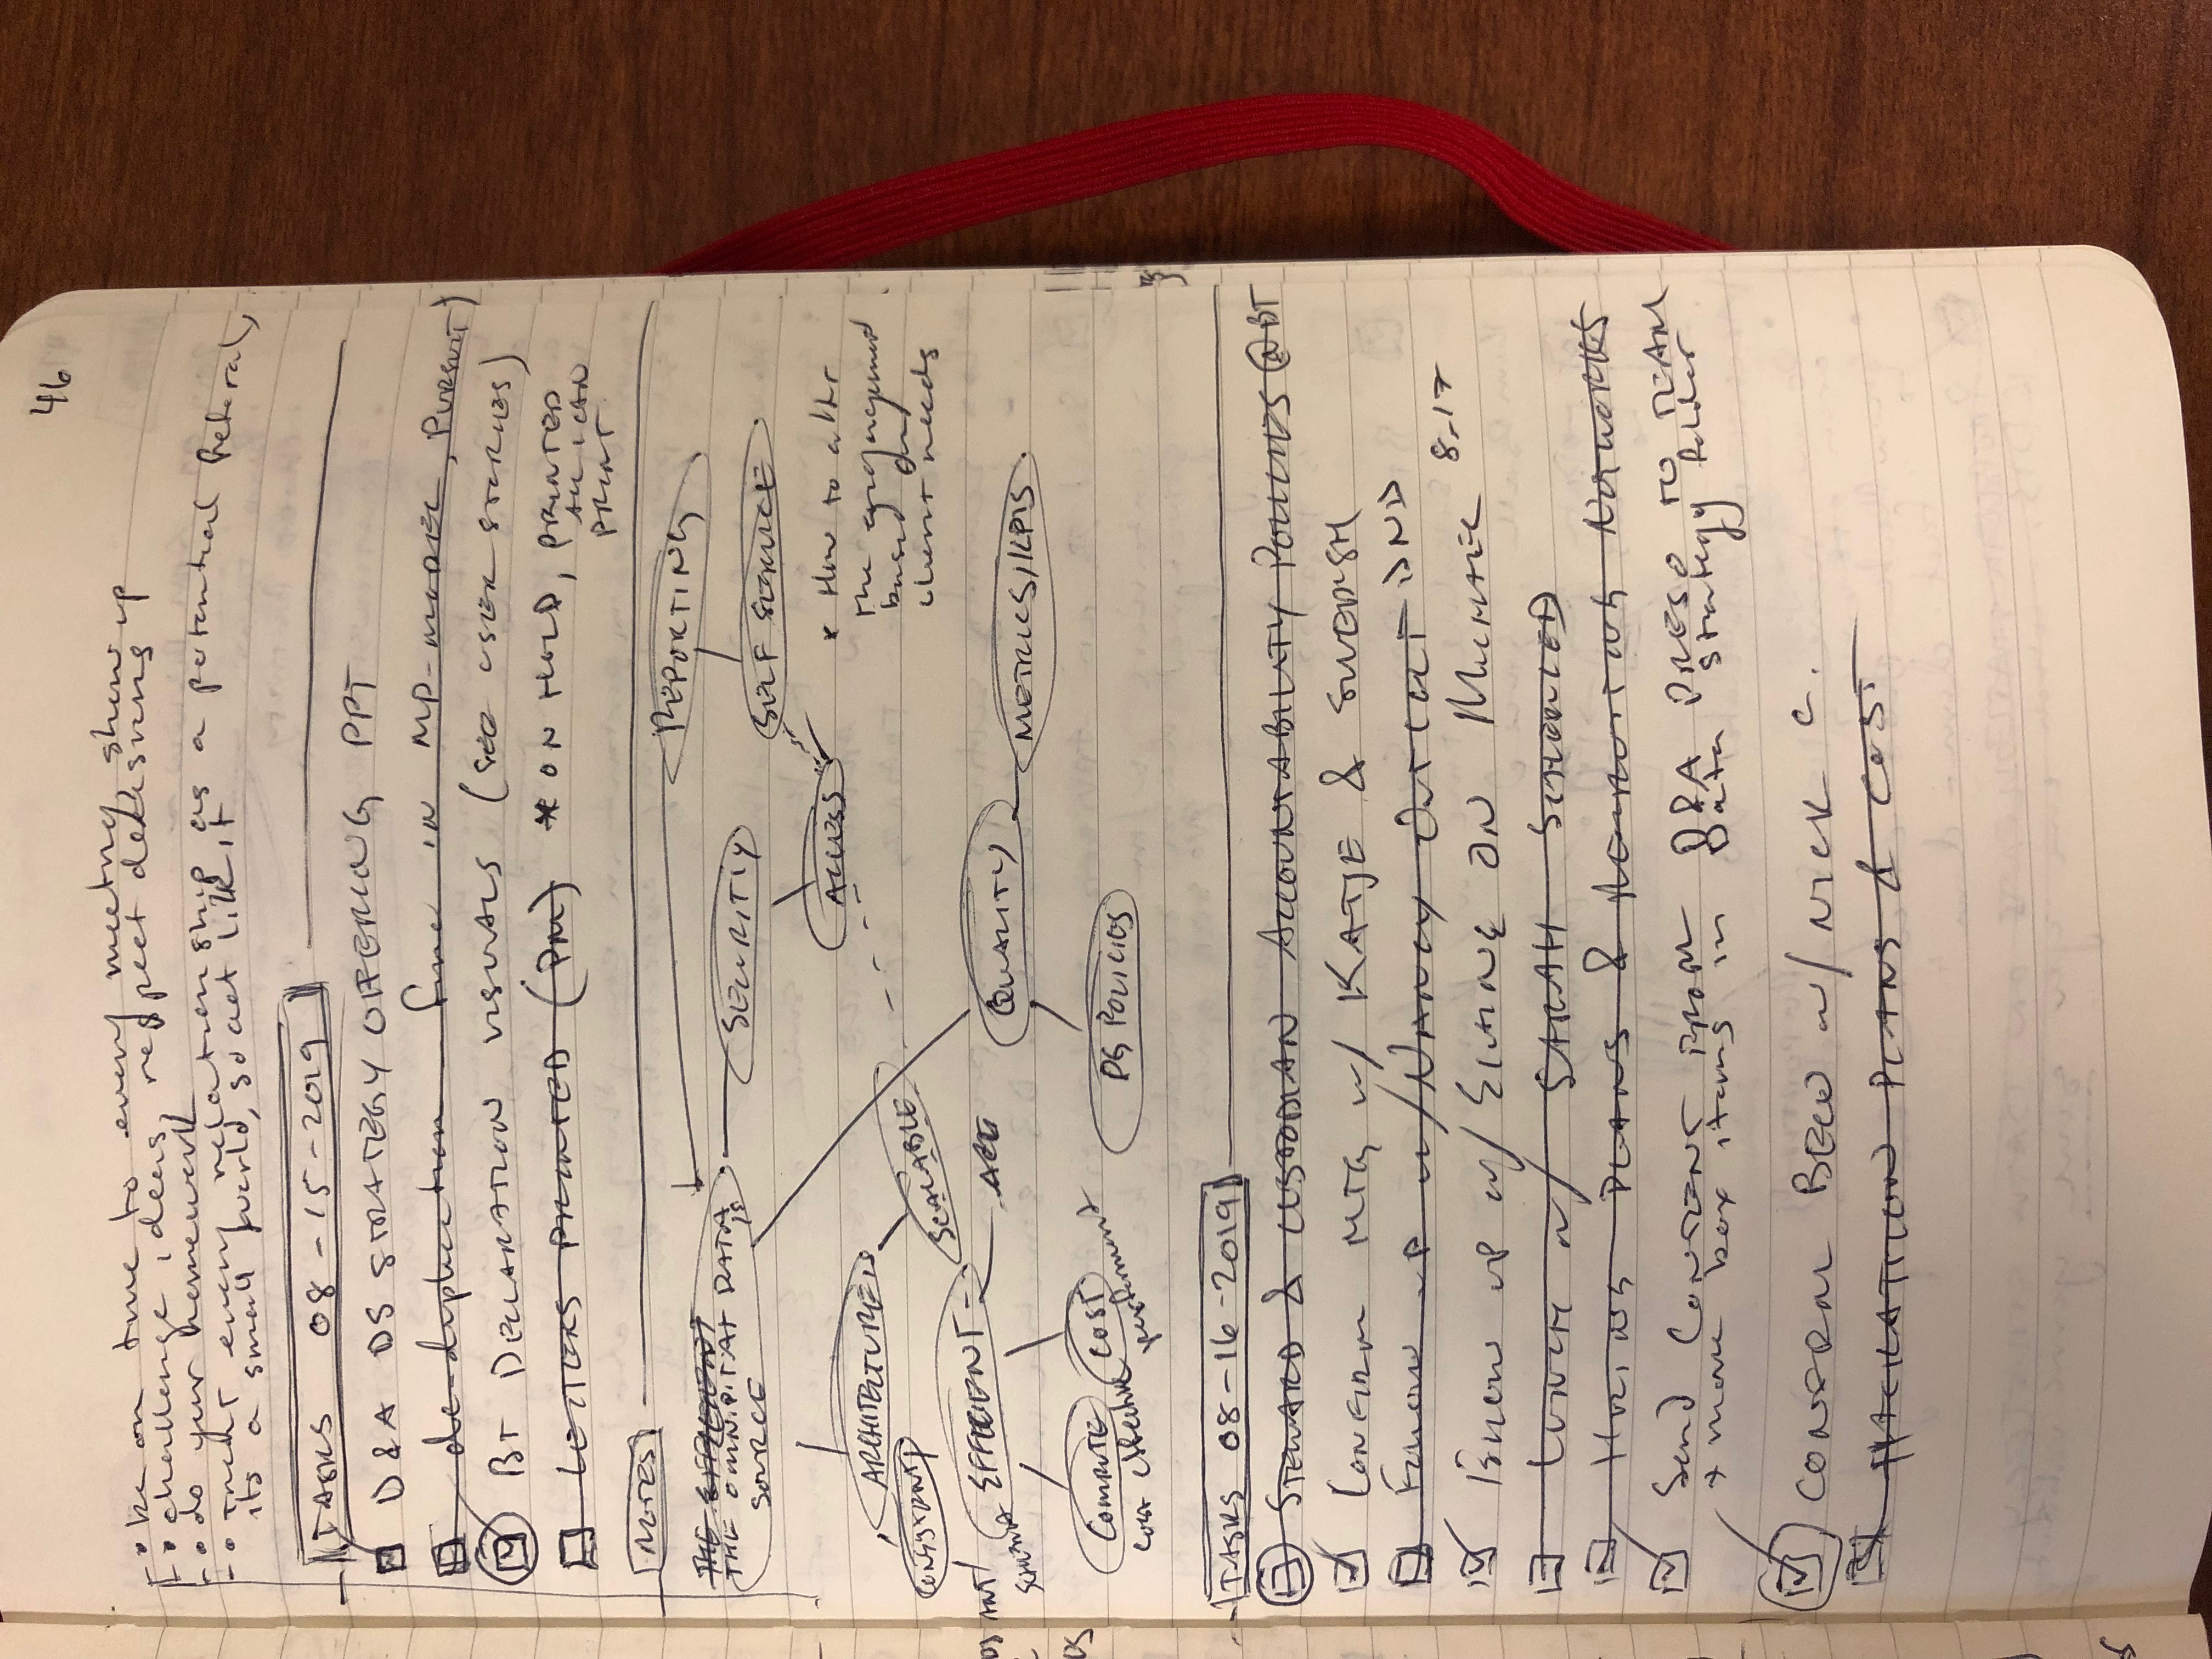 46
• be on time to every meeting, show up
• challenge ideas, respect decisions
• do your homework
• treat every relationship as a potential referal,
its a small world, so act like it
TASKS 08-15-2019
D&A DS STRATEGY OFFERING PPT
de-duplication time in MP-MODEL, PURSUIT)
BT DECLARATION VISUALS (SEE USER STORIES)
LETTERS PRINTED (PM) * ON HOLD, PRINTED
ALL I CAN
PRINT
NOTES
REPORTING
THE EFFICIENT
THE DATA
SOURCE
is
SECURITY
SELF SERVICE
ACCESS
* How to alter
the engagement
based on
client needs
ARCHITECTURE is
CONSISTENT
SCALABLE
EFFICIENT
SCHEMA
QUALITY
METRICS/KPIS
COMPUTE
COST
cost effective
performant
DG POLICIES
TASKS 08-16-2019
STEWARD & CUSTODIAN ACCOUNTABILITY POLICIES @BT
CONFIRM MTG w/ KATJE & SWEDISH
FOLLOW UP w/ NANCY DND
FOLLOW UP w/ ELAINE ON MICHAEL 8-17
LUNCH w/ SARAH SCHEDULED
HIRING PLANS & RECRUITING NETWORKS
Send CONTENT FROM D&A PRESO TO TEAM
* move box items in Data strategy folder
CONFIRM w/ NICK C.
HACKATHON PLANS & COST